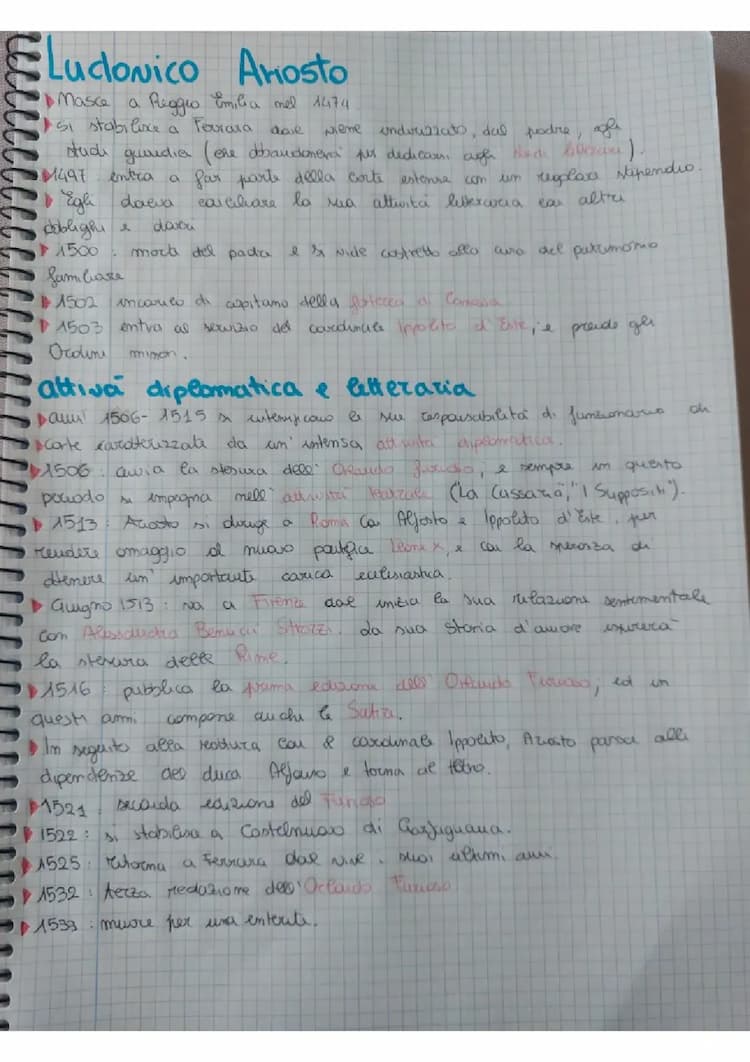 Ludovico Ariosto
Nasce a Reggio Emilia nel 1474
si stabilisce a Ferrara dove viene indirizzato, dal padre, agli
studi giuridici (che abbandonerà per dedicarsi agli studi letterari).
1497 entra a far parte della corte estense con un regolare stipendio.
Egli doveva conciliare la sua attività letteraria con altri
obblighi e doveri
1500: morte del padre e si vide costretto alla cura del patrimonio
familiare
1502 incarico di capitano della fortezza di Canossa
1503 entra al servizio del cardinale Ippolito d'Este, e prende gli
Ordini minori.
attività diplomatica e letteraria
anni 1506-1515 si le sue responsabilità di funzionario di
corte caratterizzate da un'intensa attività diplomatica.
1506: avvia la stesura dell'Orlando furioso, e sempre in questo
periodo si impegna nell'attività teatrale ("La Cassaria", "I Suppositi").
1513: Ariosto si dirige a Roma con Alfonso e Ippolito d'Este, per
rendere omaggio al nuovo pontefice Leone X, e con la speranza di
ottenere un'importante carica ecclesiastica.
Giugno 1513: va a Firenze dove inizia la sua relazione sentimentale
con Alessandra Benucci Strozzi, da sua storia d'amore
la stesura delle Rime.
1516: pubblica la prima edizione dell'Orlando Furioso, ed in
questi anni compone anche le Satire.
In seguito alla rottura con il cardinale Ippolito, Ariosto passa alle
dipendenze del duca Alfonso e torna al teatro.
1521: seconda edizione del Furioso
1522: si stabilisce a Castelnuovo di Garfagnana.
1525: ritorna a Ferrara dove vive i suoi ultimi anni.
1532: terza redazione dell'Orlando Furioso
1533: muore per una enterite.